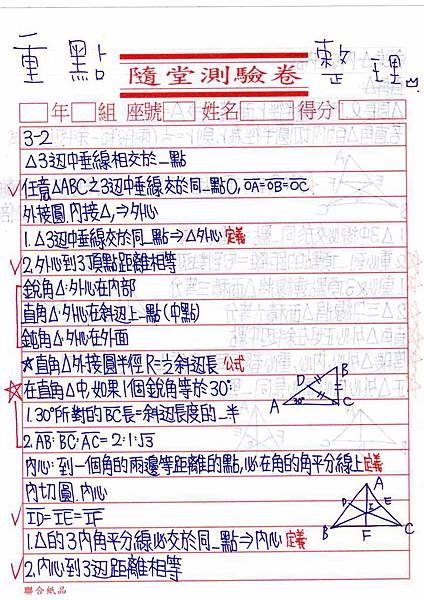 重點 整理
隨堂測驗卷
年 組 座號 姓名 得分
3-2
△3边中垂線相交於一點
任意△ABC之3边中垂線交於同一點O, OA=OB=OC
外接圓.內接△,⇒外心
1.△3边中垂線交於同一點⇒△外心 定義
2.外心到3頂點距離相等
銳角△:外心在內部
直角△:外心在斜边上一點(中點)
鈍角△:外心在外面
☆直角△外接圓半徑 R=½斜边長 公式
在直角△中,如果1個銳角等於30°
1.30°所對的BC長=斜边長度的一半
2.AB:BC:AC=2:1:√3
A B C D 30°
內心:到一個角的兩邊等距離的點,必在角的角平分線上 定義
內切圓.內心
ID=IE=IF
1.△的3內角平分線必交於同一點⇒內心 定義
2.內心到3边距離相等
A D E I B F C
聯合紙品